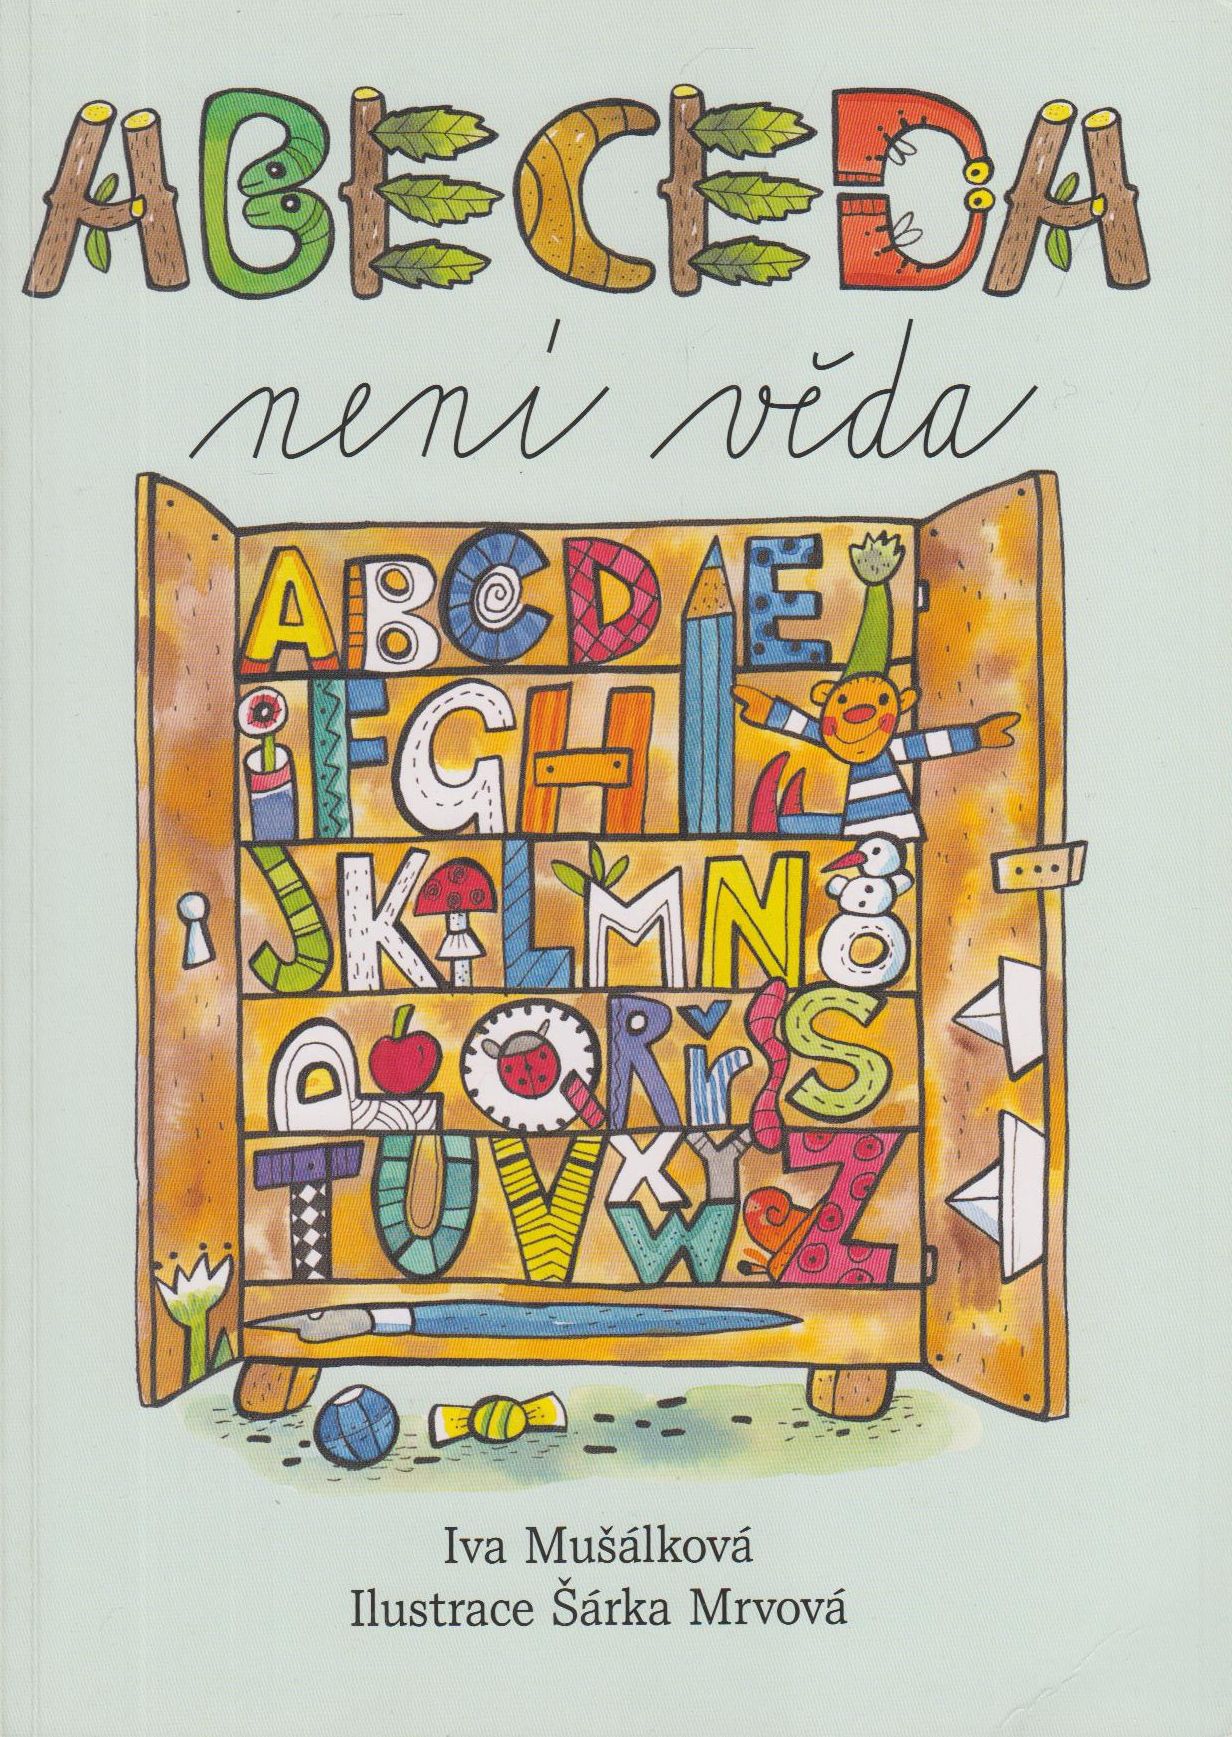 ABECEDA
není věda
ABCDE
iFGHI
JKLMNO
PQRřS
TUVXYWZ
Iva Mušálková
Ilustrace Šárka Mrvová